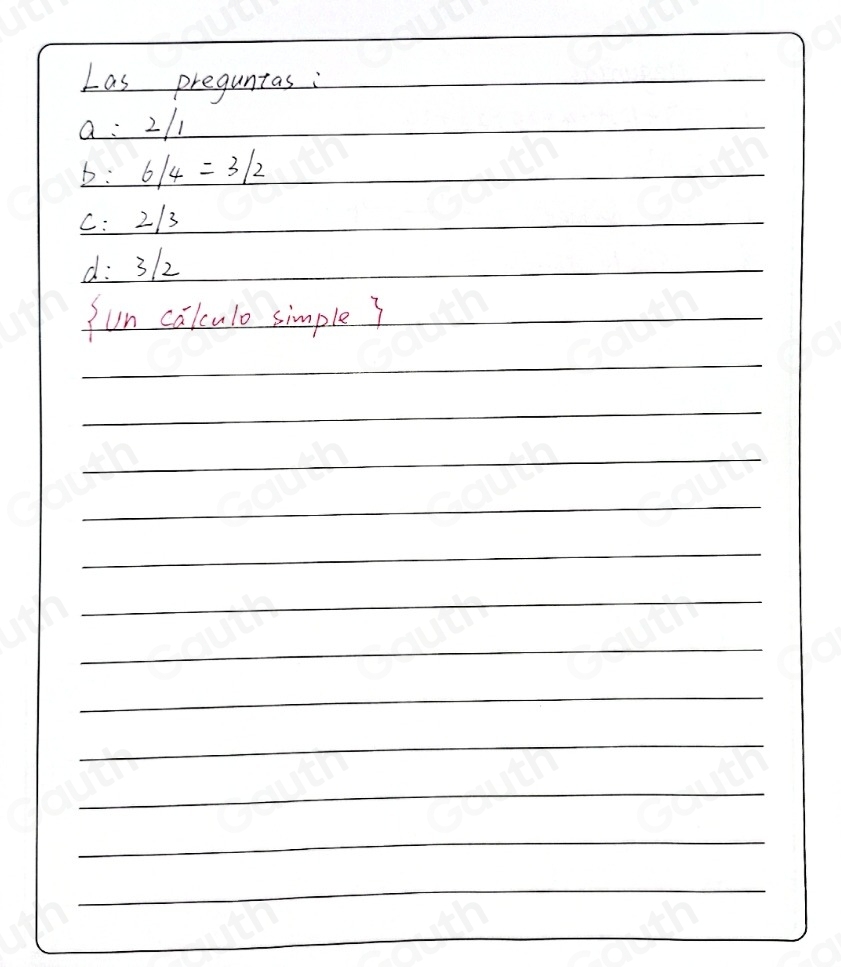 Las preguntas:
a: 2/1
b: 6/4 = 3/2
c: 2/3
d: 3/2
{Un cálculo simple}